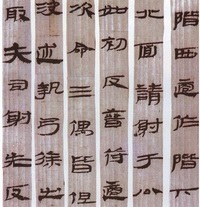 階西適作階下
北面請射于公
如初反晉符適
次命三偶皆但
決述執弓徐出
取矢司射先反